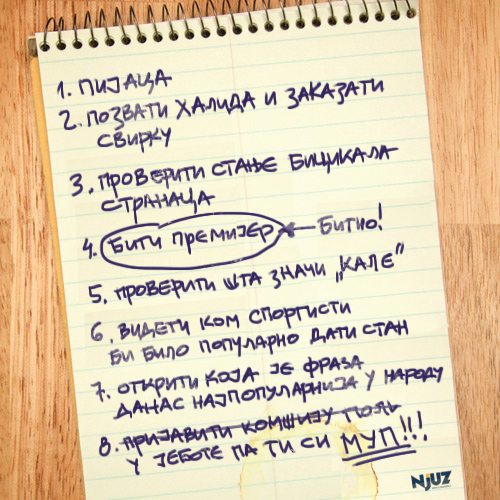 1. ПИЈАЦА
2. ПОЗВАТИ ХАЛИДА И ЗАКАЗАТИ
СВИРКУ
3. ПРОВЕРИТИ СТАЊЕ БИЦИКАЛА
СТРАНАЦА
4. БИТИ ПРЕМИЈЕР ← БИТНО!
5. ПРОВЕРИТИ ШТА ЗНАЧИ „КАЛЕ”
6. ВИДЕТИ КОМ СПОРТИСТИ
БИ БИЛО ПОПУЛАРНО ДАТИ СТАН
7. ОТКРИТИ КОЈА ЈЕ ФРАЗА
ДАНАС НАЈПОПУЛАРНИЈА У НАРОДУ
8. ПРИЈАВИТИ КОМШИЈУ ПОЉ
У ЈЕБОТЕ ПА ТИ СИ МУП!!!
NJUZ